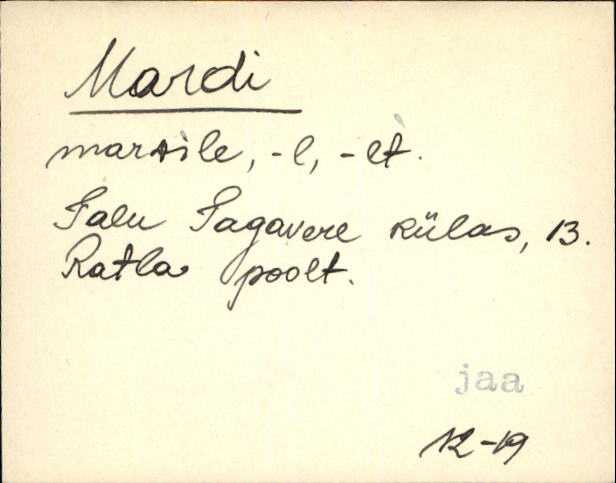 Mardi
marsile, -l, -lt.
Talu Tagavere külas, 13.
Ratla poolt.
jaa
12-19